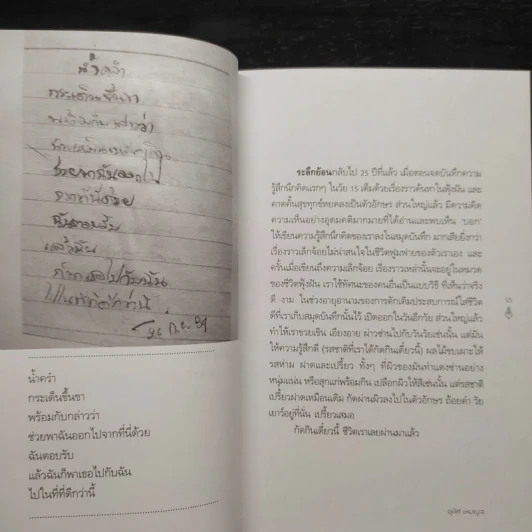 น้ำคร่ำ
กระเด็นขึ้นขา
พร้อมกับกล่าวว่า
ช่วยพาฉันออกไป
จากที่นี่ด้วย
ฉันตอบรับ
แล้วฉัน
ก็พาเธอไปกับฉัน
ไปในที่ที่ดีกว่านี้
น้ำคร่ำ
กระเด็นขึ้นขา
พร้อมกับกล่าวว่า
ช่วยพาฉันออกไปจากที่นี่ด้วย
ฉันตอบรับ
แล้วฉันก็พาเธอไปกับฉัน
ไปในที่ที่ดีกว่านี้
ระลึกย้อนกลับไป 25 ปีที่แล้ว เมื่อตอนจดบันทึกความ
รู้สึกนึกคิดแรกๆ ในวัย 15 เต็มด้วยเรื่องราวค้นหาในฟุ้งฝัน และ
คาดคั้นสุขทุกข์หยดลงเป็นตัวอักษร ส่วนใหญ่แล้ว มีความคิด
ความเห็นอย่างอุดมคติมากมายที่ได้อ่านและพบเห็น 'บอก'
ให้เขียนความรู้สึกนึกคิดของเราลงในสมุดบันทึก มากเสียยิ่งกว่า
เรื่องราวเล็กจ้อยไม่น่าสนใจในชีวิตฟูมฟายของตัวเราเอง และ
ครั้นเมื่อเขียนถึงความเล็กจ้อย เรื่องราวเหล่านั้นจะอยู่ในหมวด
ของชีวิตฟุ้งฝัน เราใช้ทัศนะของคนอื่นเป็นแบบวิธี ที่เห็นว่าจริง
ดี งาม ในช่วงอายุอานามของการดักเติมประสบการณ์ใส่ชีวิต
ดีที่เราเก็บสมุดบันทึกนั้นไว้ เปิดออกในวันอีกวัย ส่วนใหญ่แล้ว
ทำให้เราขวยเขิน เอียงอาย ผ่าวซ่านไปกับวันวัยเช่นนั้น แต่มัน
ให้ความรู้สึกดี (รสชาติที่เราได้กัดกินเดี๋ยวนี้) ผลไม้ชนิดเผาะให้
รสห่าม ฝาดและเปรี้ยว ทั้งๆ ที่ผิวของมันทำแดงซ่านอย่าง
หนุ่มแน่น หรือสุกแก่พร้อมกิน เปลือกผิวให้สีเช่นนั้น แต่รสชาติ
เปรี้ยวฝาดเหมือนเดิม กัดผ่านผิวลงไปในตัวอักษร ถ้อยคำ วัย
เยาว์อยู่ที่นั่น เปรี้ยวเสมอ
กัดกินเดี๋ยวนี้ ชีวิตเราเลยผ่านมาแล้ว